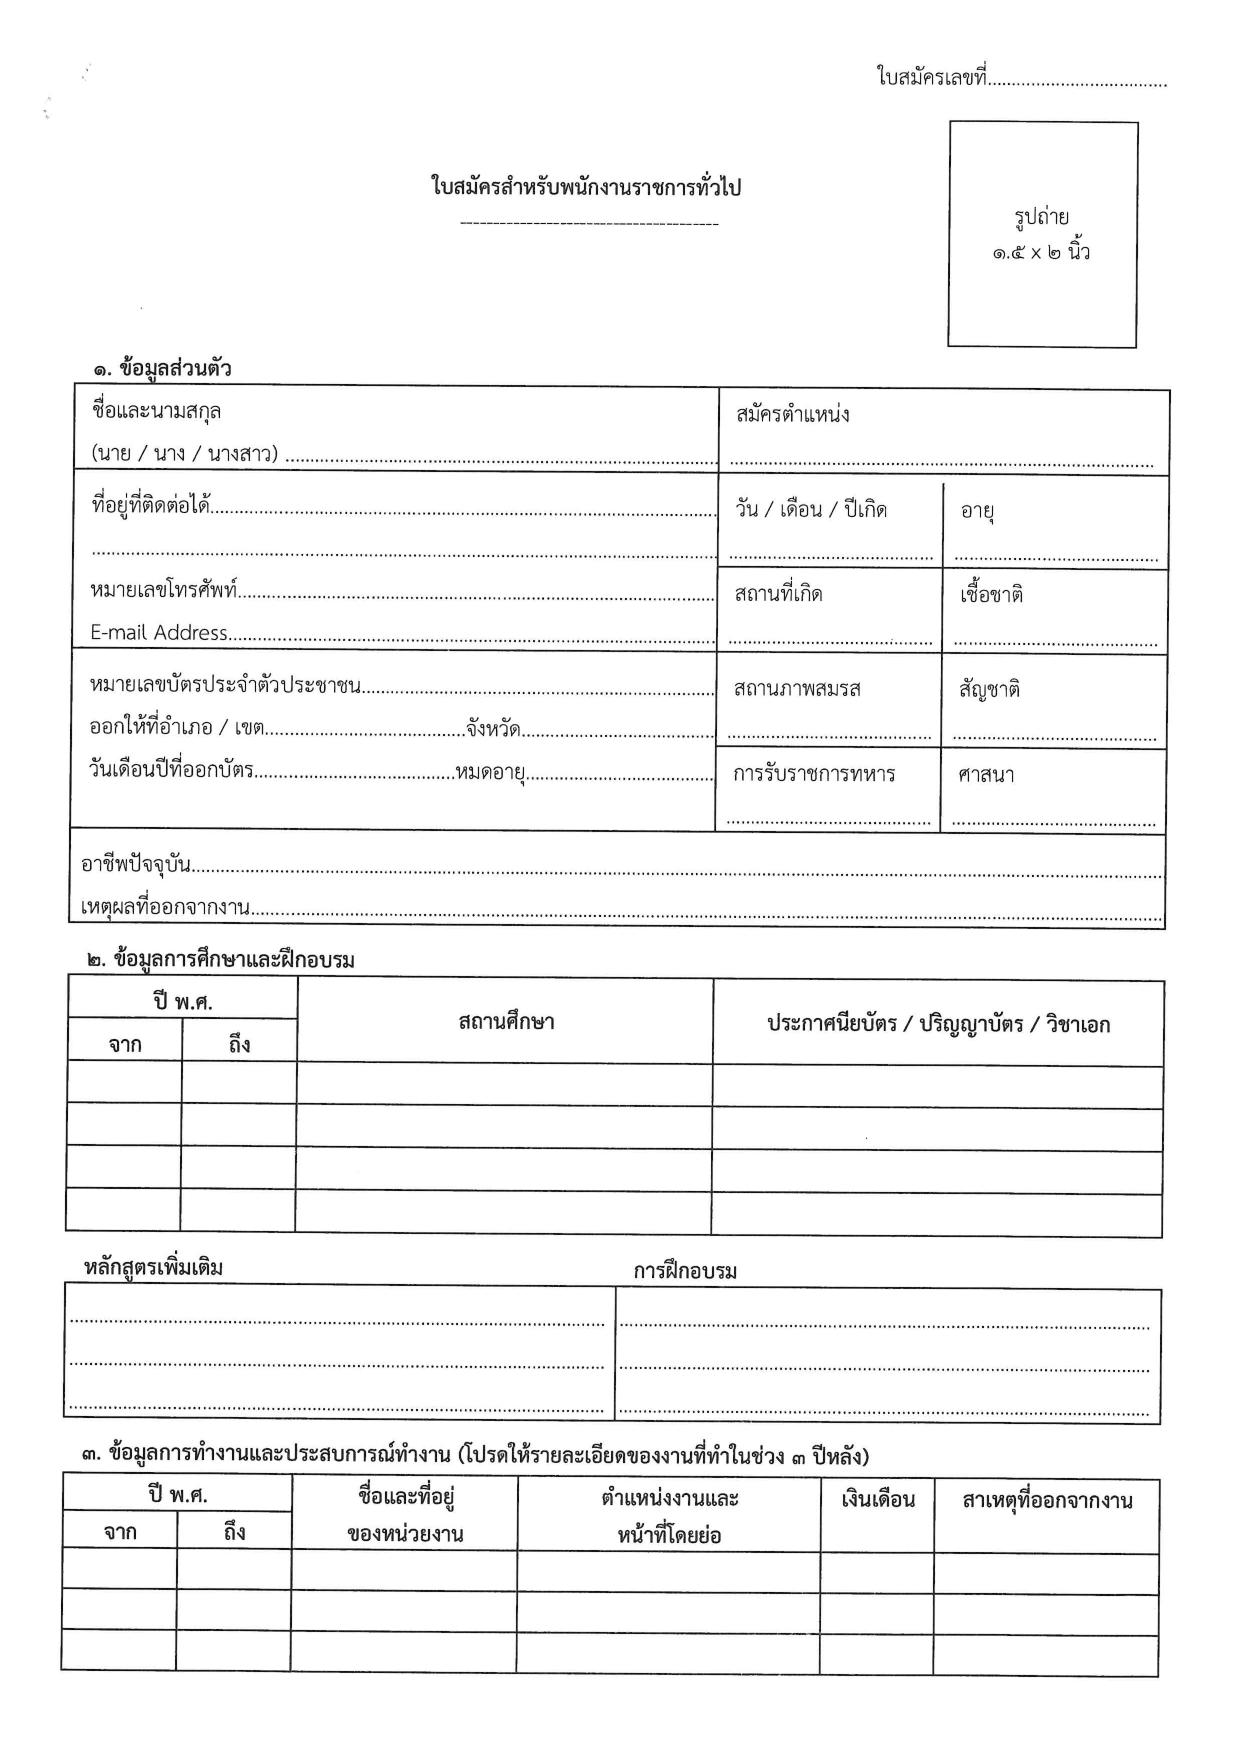 ใบสมัครเลขที่....................................
ใบสมัครสำหรับพนักงานราชการทั่วไป
---------------------------------------
รูปถ่าย
๑.๕ x ๒ นิ้ว
๑. ข้อมูลส่วนตัว
ชื่อและนามสกุล
(นาย / นาง / นางสาว) ....................................
สมัครตำแหน่ง
....................................
ที่อยู่ที่ติดต่อได้....................................
....................................
หมายเลขโทรศัพท์....................................
E-mail Address....................................
วัน / เดือน / ปีเกิด
....................................
อายุ
....................................
สถานที่เกิด
....................................
เชื้อชาติ
....................................
หมายเลขบัตรประจำตัวประชาชน....................................
ออกให้ที่อำเภอ / เขต....................................จังหวัด....................................
วันเดือนปีที่ออกบัตร....................................หมดอายุ....................................
สถานภาพสมรส
....................................
สัญชาติ
....................................
การรับราชการทหาร
....................................
ศาสนา
....................................
อาชีพปัจจุบัน....................................
เหตุผลที่ออกจากงาน....................................
๒. ข้อมูลการศึกษาและฝึกอบรม
ปี พ.ศ.
จาก ถึง
สถานศึกษา
ประกาศนียบัตร / ปริญญาบัตร / วิชาเอก
หลักสูตรเพิ่มเติม
การฝึกอบรม
....................................
....................................
....................................
....................................
....................................
....................................
๓. ข้อมูลการทำงานและประสบการณ์ทำงาน (โปรดให้รายละเอียดของงานที่ทำในช่วง ๓ ปีหลัง)
ปี พ.ศ.
จาก ถึง
ชื่อและที่อยู่
ของหน่วยงาน
ตำแหน่งงานและ
หน้าที่โดยย่อ
เงินเดือน
สาเหตุที่ออกจากงาน